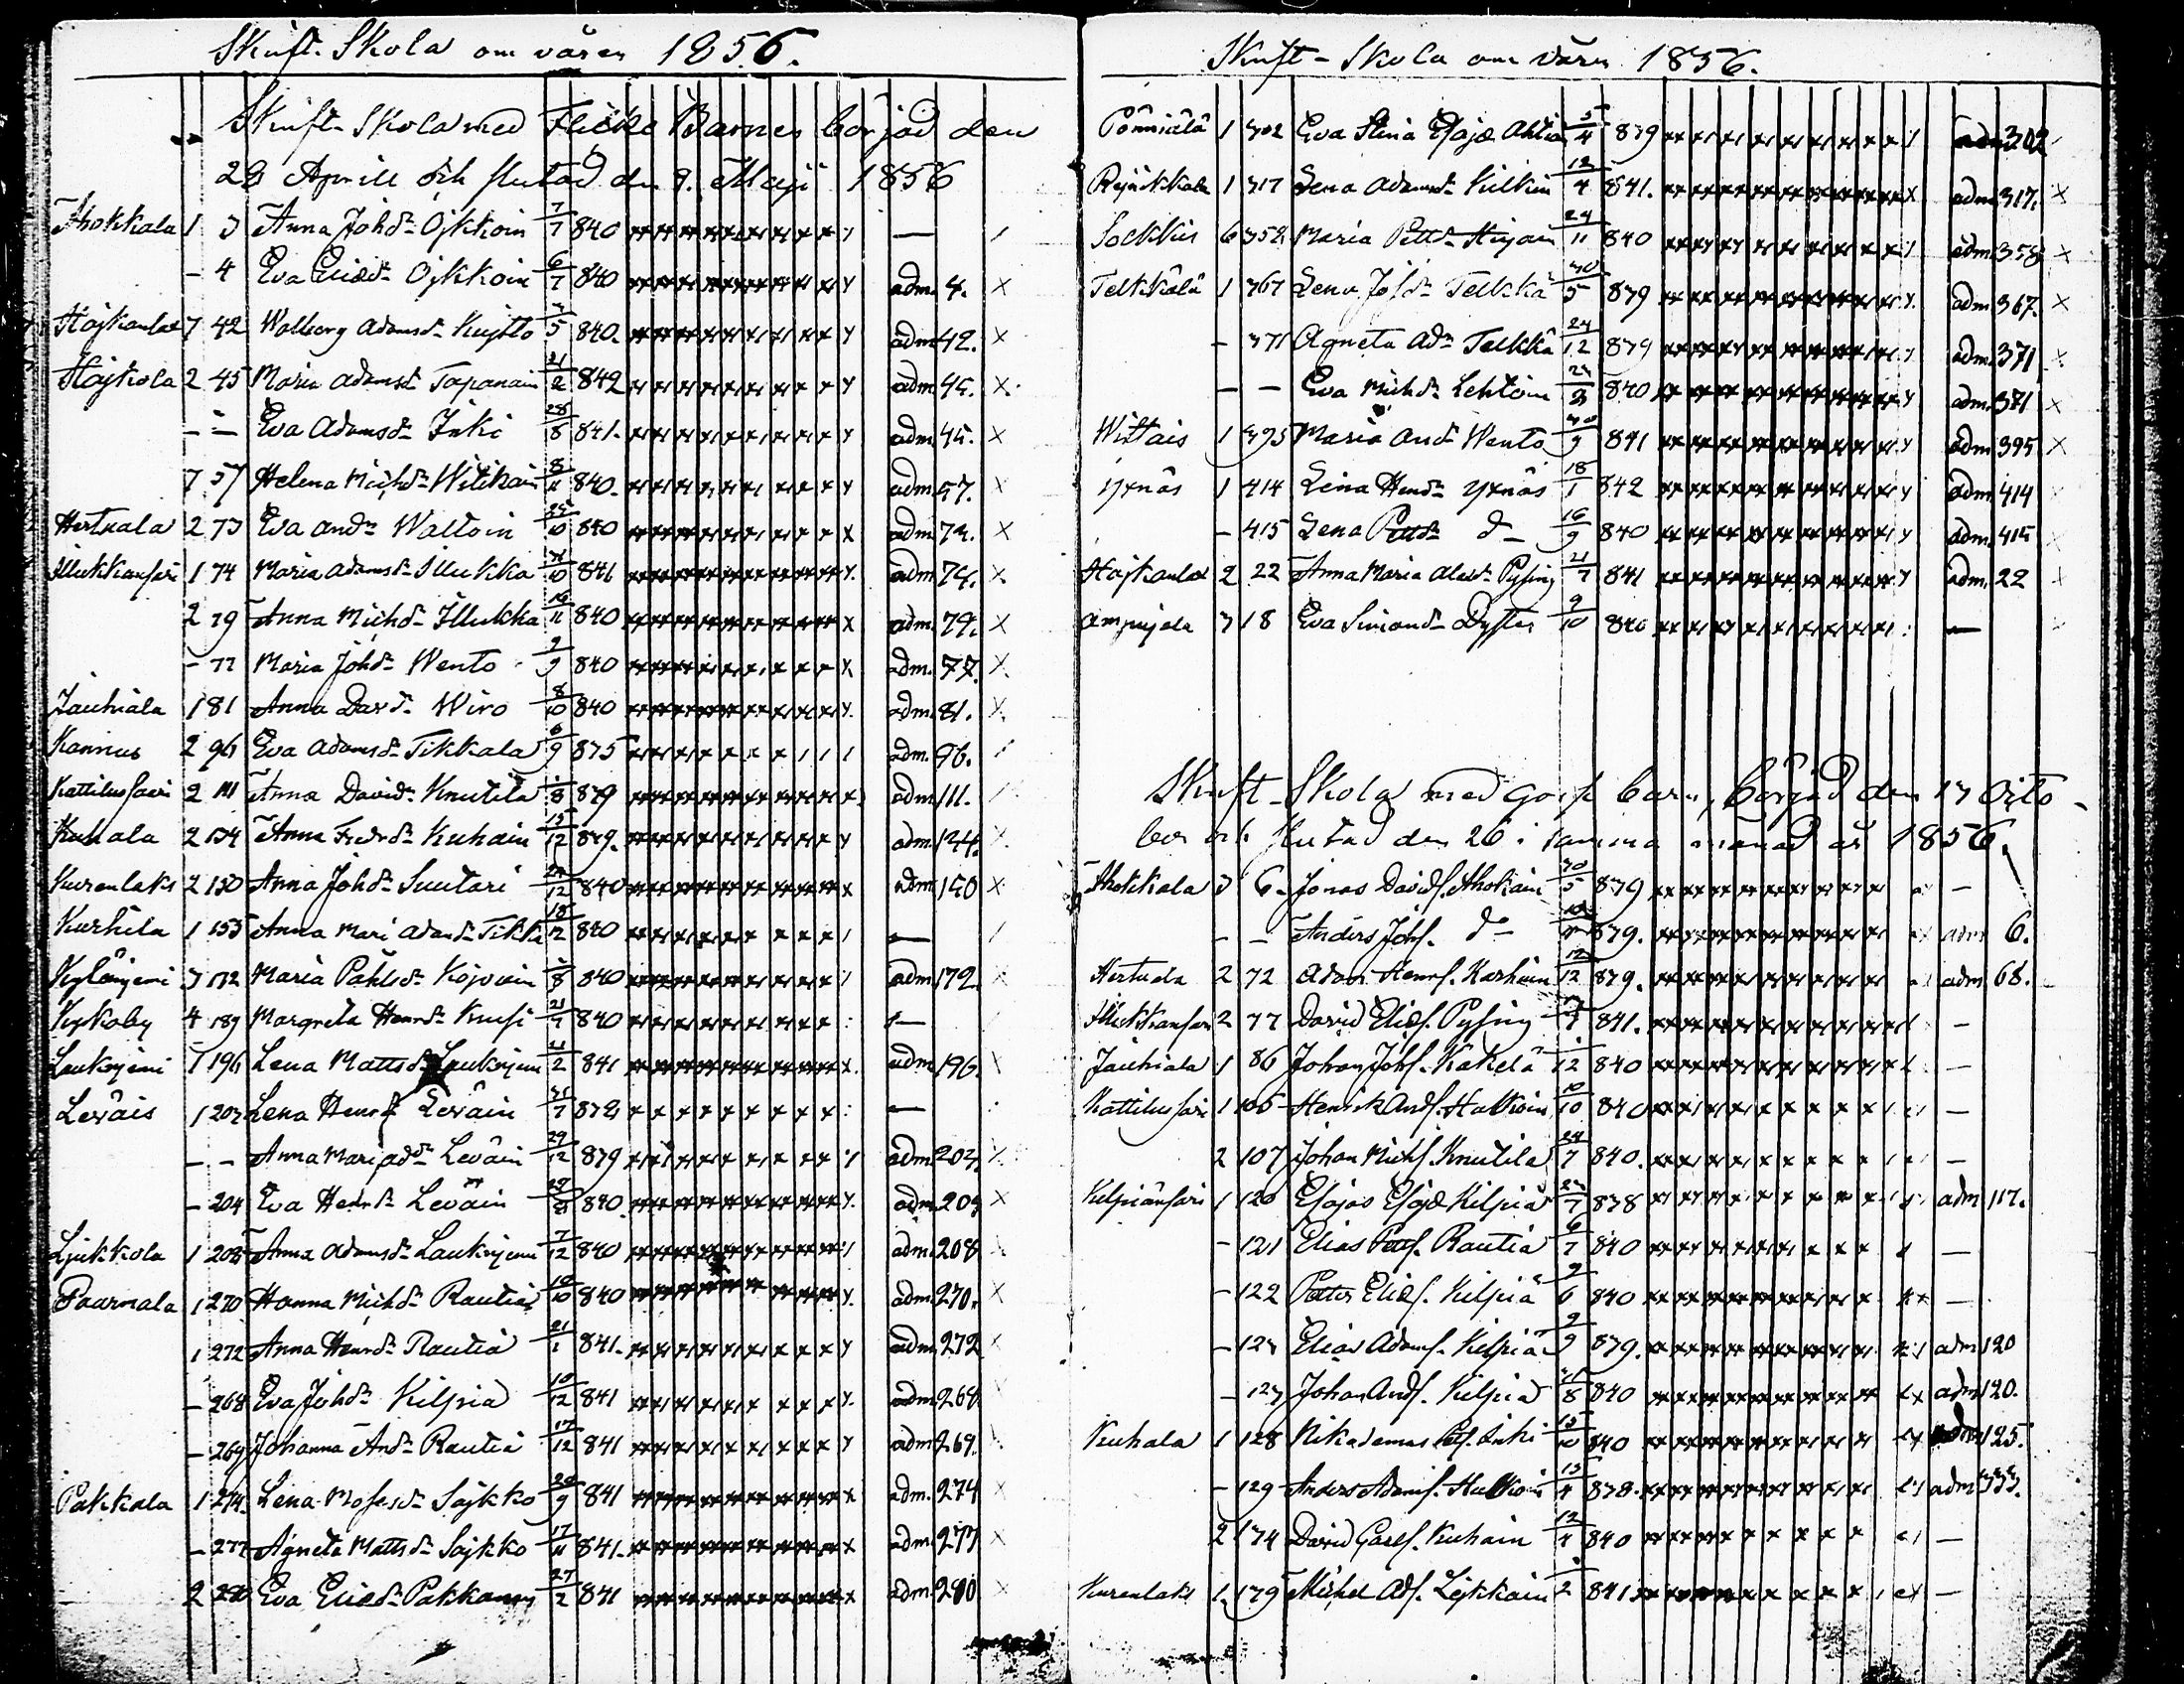 Skrift-Skola om våren 1856.
Skrift-Skola med Flicke Barnen börjad den
28 Aprill och slutad den 9. Maji 1856
Ahokkala 1 3 Anna Johdr Ojkkoin 7/7 840 —
— 4 Eva Eliædr Ojkkoin 6/7 840 adm. 4. x
7 42 Walborg Adamsdr 5 840. adm 42. x
2 45 Maria Adamsdr Tapanain 21/2 842 adm 45. x
— — Eva Adamsdr Inki 28/8 841. adm 45. x
7 57 Helena Michdr Witikain 8/11 840. adm 57. x
Hertuala 2 73 Eva Anddr Waltoin 10 840 adm 73. x
Illukkansari 1 74 Maria Adamsdr Illukka 10 841 adm 74. x
2 79 Anna Michdr Illukka 16/11 840 adm. 79. x
— 77 Maria Johdr Wento 9/9 840 adm. 77. x
Jauhiala 1 81 Anna Davdr Wiro 8/10 840 adm. 81. x
Kannus 2 96 Eva Adamsdr Tikkala 6/9 835 adm. 96.
Kattilussaari 2 111 Anna Daviddr Knutila 8 839 adm 111.
Kuhala 2 134 Anna Fredrdr Kuhain 15/12 839. adm. 134. x
Kurenlaks 2 150 Anna Johdr Suutari 12 840 adm. 150 x
Kurhila 1 155 Anna Mari Adamdr Tikka 18/12 840 —
Kylänjemi 3 172 Maria Påhlsdr Kojoin 8 840 adm 172. x
Kyrkoby 4 189 Margreta Henrdr Knusi 21/7 840 —
Laukniemi 1 196 Lena Mattsdr Lauknjemi 2 841 adm 196.
Leväis 1 203 Lena Henrdr Leväin 7 838 —
— — Anna Mari Addr Leväin 29/12 839 adm. 203. x
— 204 Eva Henrdr Leväin 840. adm. 204 x
Ljukkola 1 208 Anna Adamsdr Lauknjemi 7/12 840 adm. 208
Paarmala 1 270 Hanna Michdr Rautia 10/10 840 adm. 270. x
1 272 Anna Henrdr Rautia 21/1 841. adm. 272 x
— 268 Eva Johdr Kilpia 10/12 841 adm. 268
— 269 Johanna Anddr Rautia 17/12 841 adm. 269.
Pakkala 1 274. Lena Mosesdr Sojkko 20/9 841 adm. 274 x
— 277 Agneta Mattsdr Sojkko 17/11 841. adm. 277 x
2 280 Eva Eliædr Pakkanen 27/2 841 adm. 280 x
Skrift-Skola om våren 1856.
Pönniälä 1 302 Eva Stina Esajæ Ahtia 5/4 839 adm 302
1 317 Lena Adamsdr Kilkin 12/4 841. adm. 317. x
Sockkis 6 358. Maria Pettdr 24/11 840 adm. 358 x
Telkkälä 1 367 Lena Johdr Telkkä 30/5 839 adm. 367. x
— 371 Agneta Addr Telkkä 24/12 839 adm. 371 x
— — Eva Michdr Lehtoin 840 adm. 371 x
Wittais 1 395 Maria Anddr Wento 9 841 adm. 395 x
Yxnäs 1 414 Lena Hendr Yxnäs 18/1 842 adm. 414
— 415 Lena Pettdr do 16/9 840 adm. 415
2 22 Anna Maria Alexdr Pysing 21/7 841 adm. 22 x
Ampujala 3 18 Eva Simondr Dyster 9/10 840 —
Skrift-Skola med goss barn, börjad den 13 Octo-
ber och slutad den 26 i samma månad år 1856.
Ahokkala 3 6. Jonas Davids. Ahokain 30/5 839 —
— — Anders Johs. do 839. adm 6.
Hertuala 2 72 Adam Henrs. Karhuin 12/12 839. adm 68.
Illukkansari 2 77 David Eliæs. Pysing 7 841. —
Jauhiala 1 86 Johan Johs. Kakelä 12 840 —
Kattilussari 1 105 Henrik Ands. Halkoin 10/10 840 —
2 107 Johan Michs. Knutila 24/7 840. —
Kilpiänsari 1 120 Esajas Esajæ Kilpiä 7 838 adm 117.
— 121 Elias Petts. Rautia 6/7 840 —
— 122 Petter Eliæs. Kilpiä 9/6 840 —
— 123 Elias Adams. Kilpiä 9/9 839. adm 120
— 123 Johan Ands. Kilpiä 8 840 adm 120.
Kuhala 1 128 Nikodemus Inki 15/10 840 adm 125.
— 129 Anders Adams. 13/4 838. adm 333.
2 134 David Carls. Kuhain 12/4 840 —
Kurenlaks 1. 139 Michel Ads. Lejkkain 2 841 —